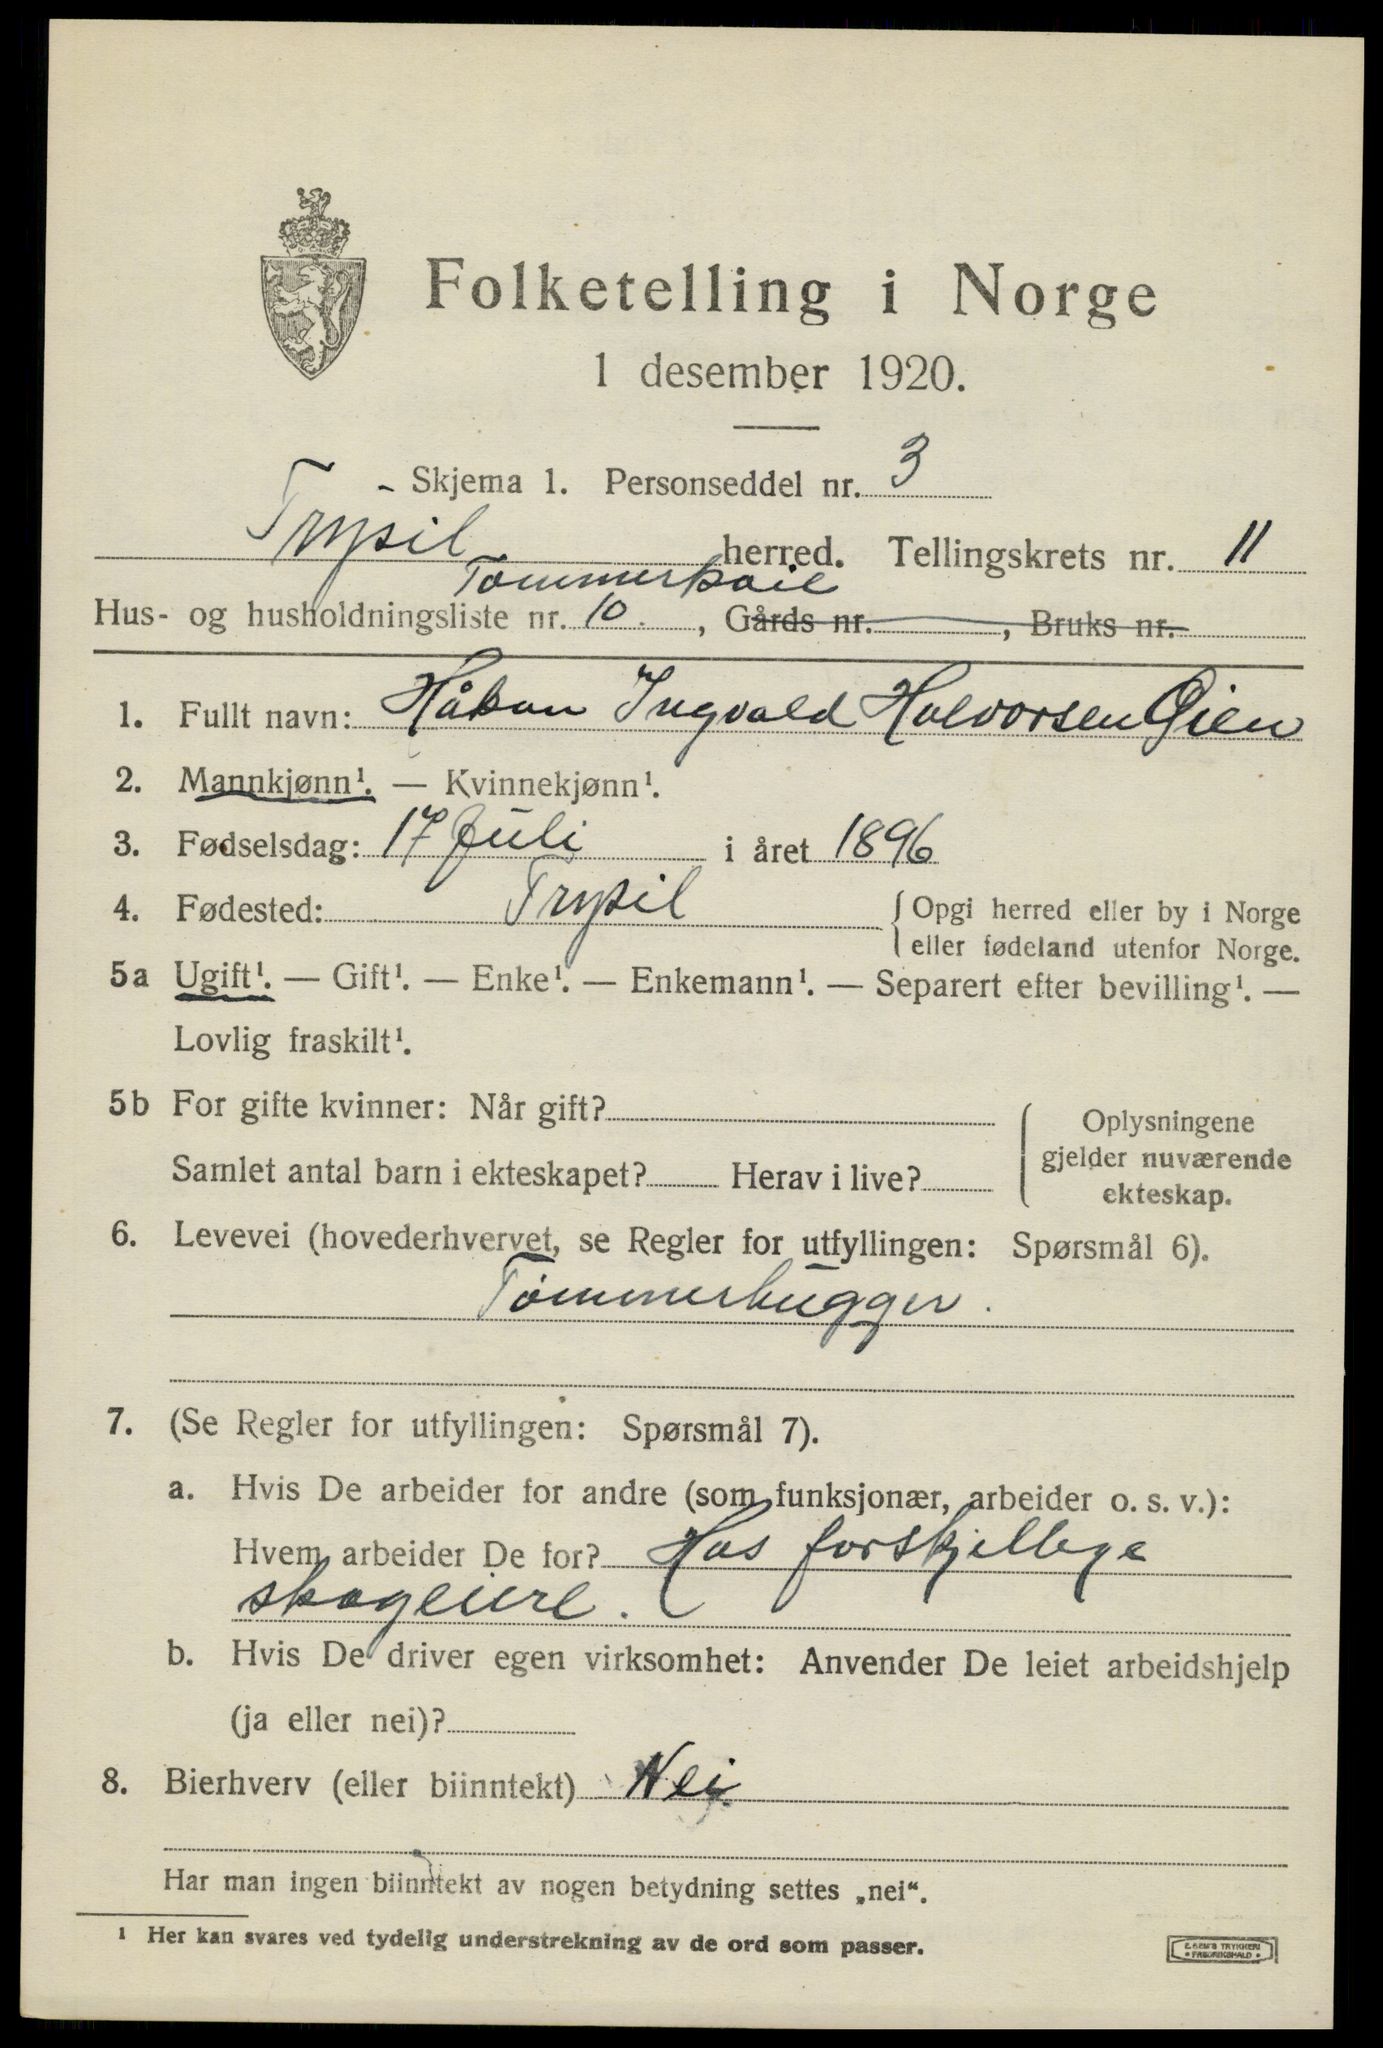 Folketelling i Norge
1 desember 1920.
Skjema 1. Personseddel nr. 3
Trysil herred. Tellingskrets nr. 11
Tømmerkoie
Hus- og husholdningsliste nr. 10. , Gårds nr. , Bruks nr.
1. Fullt navn: Håkon Ingvald Halvorsen Øien
2. Mannkjønn¹. — Kvinnekjønn¹.
3. Fødselsdag: 17 Juli i året 1896
4. Fødested: Trysil { Opgi herred eller by i Norge
eller fødeland utenfor Norge.
5a Ugift¹. — Gift¹. — Enke¹. — Enkemann¹. — Separert efter bevilling¹. —
Lovlig fraskilt¹.
5b For gifte kvinner: Når gift?
Samlet antal barn i ekteskapet? Herav i live?
Oplysningene
gjelder nuværende
ekteskap.
6. Levevei (hovederhvervet, se Regler for utfyllingen: Spørsmål 6).
Tømmerhugger.
7. (Se Regler for utfyllingen: Spørsmål 7).
a. Hvis De arbeider for andre (som funksjonær, arbeider o. s. v.):
Hvem arbeider De for? Hos forskjellege
skogeiere.
b. Hvis De driver egen virksomhet: Anvender De leiet arbeidshjelp
(ja eller nei)?
8. Bierhverv (eller biinntekt) Nei.
Har man ingen biinntekt av nogen betydning settes „nei“.
¹ Her kan svares ved tydelig understrekning av de ord som passer.
E. SEM'S TRYKKERI
• FREDRIKSHALD •